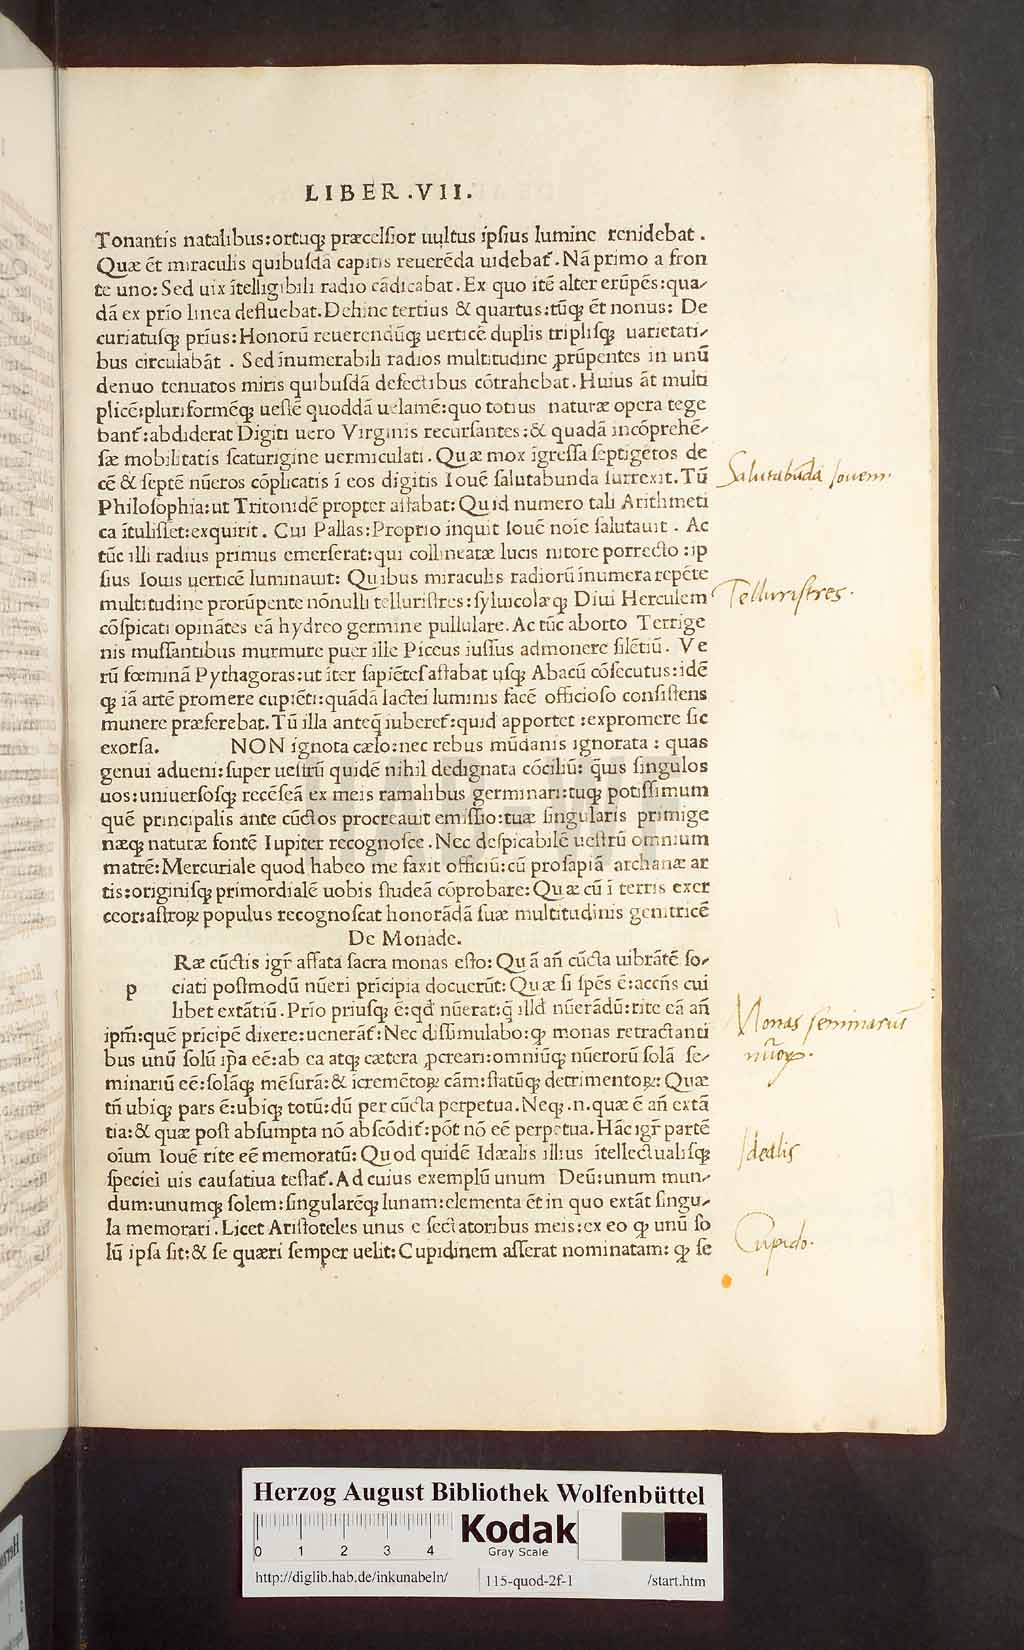 LIBER .VII.
Tonantis natalibus:ortuq; præcelsior uultus ipsius lumine renidebat .
Quæ ēt miraculis quibusdā capitis reuerēda uidebat̄ . Nā primo a fron
te uno: Sed uix ītelligibili radio cādicabat . Ex quo itē alter erūpēs:qua/
dā ex prīo linea defluebat. Dehinc tertius & quartus:tūq; ēt nonus: De
curiatusq; prīus: Honorū reuerendūq; uerticē duplis triplisq; uarietati/
bus circulabāt . Sed īnumerabili radios multitudine ꝓrūpentes in unū
denuo tenuatos miris quibusdā defectibus cōtrahebat. Huius āt multi
plicē:pluriformēq; uestē quoddā uelamē:quo totius naturæ opera tege
bant̄:abdiderat Digiti uero Virginis recursantes:& quadā incōprehē/
sæ mobilitatis scaturigine uermiculati . Quæ mox īgressa septigētos de
cē & septē nūeros cōplicatis ī eos digitis Iouē salutabunda surrexit. Tū
Philosophia:ut Tritonidē propter astabat: Quid numero tali Arithmeti
ca ītulisset:exquirit . Cui Pallas: Proprio inquit Iouē noīe salutauit . Ac
tūc illi radius primus emerserat:qui collineatæ lucis nitore porrecto :ip
sius Iouis uerticē luminauit: Quibus miraculis radiorū īnumera repēte
multitudine prorūpente nōnulli telluristres:syluicolæq; Diui Herculem
cōspicati opinātes eā hydreo germine pullulare. Ac tūc aborto Terrige
nis mussantibus murmure puer ille Piceus iussius admonere silētiū . Ve
rū fœminā Pythagoras:ut iter sapiētes astabat usq; Abacū cōsecutus:idē
q; iā artē promere cupiēti:quādā lactei luminis facē officioso consistens
munere præferebat. Tū illa anteq̄ iuberet̄:quid apportet :expromere sic
exorsa. NON ignota cælo:nec rebus mūdanis ignorata : quas
genui adueni:super uestrū quidē nihil dedignata cōciliū: q̄uis singulos
uos:uniuersosq; recēseā ex meis ramalibus germinari:tuq; potissimum
quē principalis ante cūctos procreauit emissio:tuæ singularis primige
næq; naturæ fontē Iupiter recognosce . Nec despicabilē uestrū omnium
matrē: Mercuriale quod habeo me faxit officiū:cū prosapiā archanæ ar
tis:originisq; primordialē uobis studeā cōprobare: Quæ cū ī terris exer
ceor:astroꝝ populus recognoscat honorādā suæ multitudinis genitricē
De Monade.
Ræ cūctis igr̄ affata sacra monas esto: Quā añ cūcta uibrātē so/
p ciati postmodū nūeri prīcipia docuerūt: Quæ si spēs ē:accñs cui
libet extātiū . Prīo priusq; ē:qd̄ nūerat:q̄ illd̄ nūerādū:rite eā añ
ipm̄:quē pricipē dixere:uenerāt̄: Nec dissimulabo:ꝙ monas retractanti
bus unū solū īpa eē:ab ea atq; cætera ꝓcreari:omniūq; nūerorū solā se/
minariū eē:solāq; mēsurā:& īcremētoꝝ cām:statūq; detrimentoꝝ: Quæ
tñ ubiq; pars ē:ubiq; totū:dū per cūcta perpetua. Neq; .n. quæ ē añ extā
tia:& quæ post absumpta nō abscōdit̄:pōt nō eē perpetua. Hāc igr̄ partē
oīum Iouē rite eē memoratū: Quod quidē Idæalis illius ītellectualisq;
speciei uis causatiua testat̄. Ad cuius exemplū unum Deū:unum mun/
dum:unumq; solem:singularēq; lunam:elementa ēt in quo extāt singu/
la memorari . Licet Aristoteles unus e sectatoribus meis:ex eo ꝙ unū so
lū ipsa sit:& se quæri semper uelit: Cupidinem asserat nominatam: ꝙ se
Salutabūda Iouem.
Telluristres.
Monas seminariū
nūoꝝ.
Idealis
Cupido.
HAB-WF
Herzog August Bibliothek Wolfenbüttel
0 1 2 3 4
Kodak
Gray Scale
http://diglib.hab.de/inkunabeln/
115-quod-2f-1
/start.htm